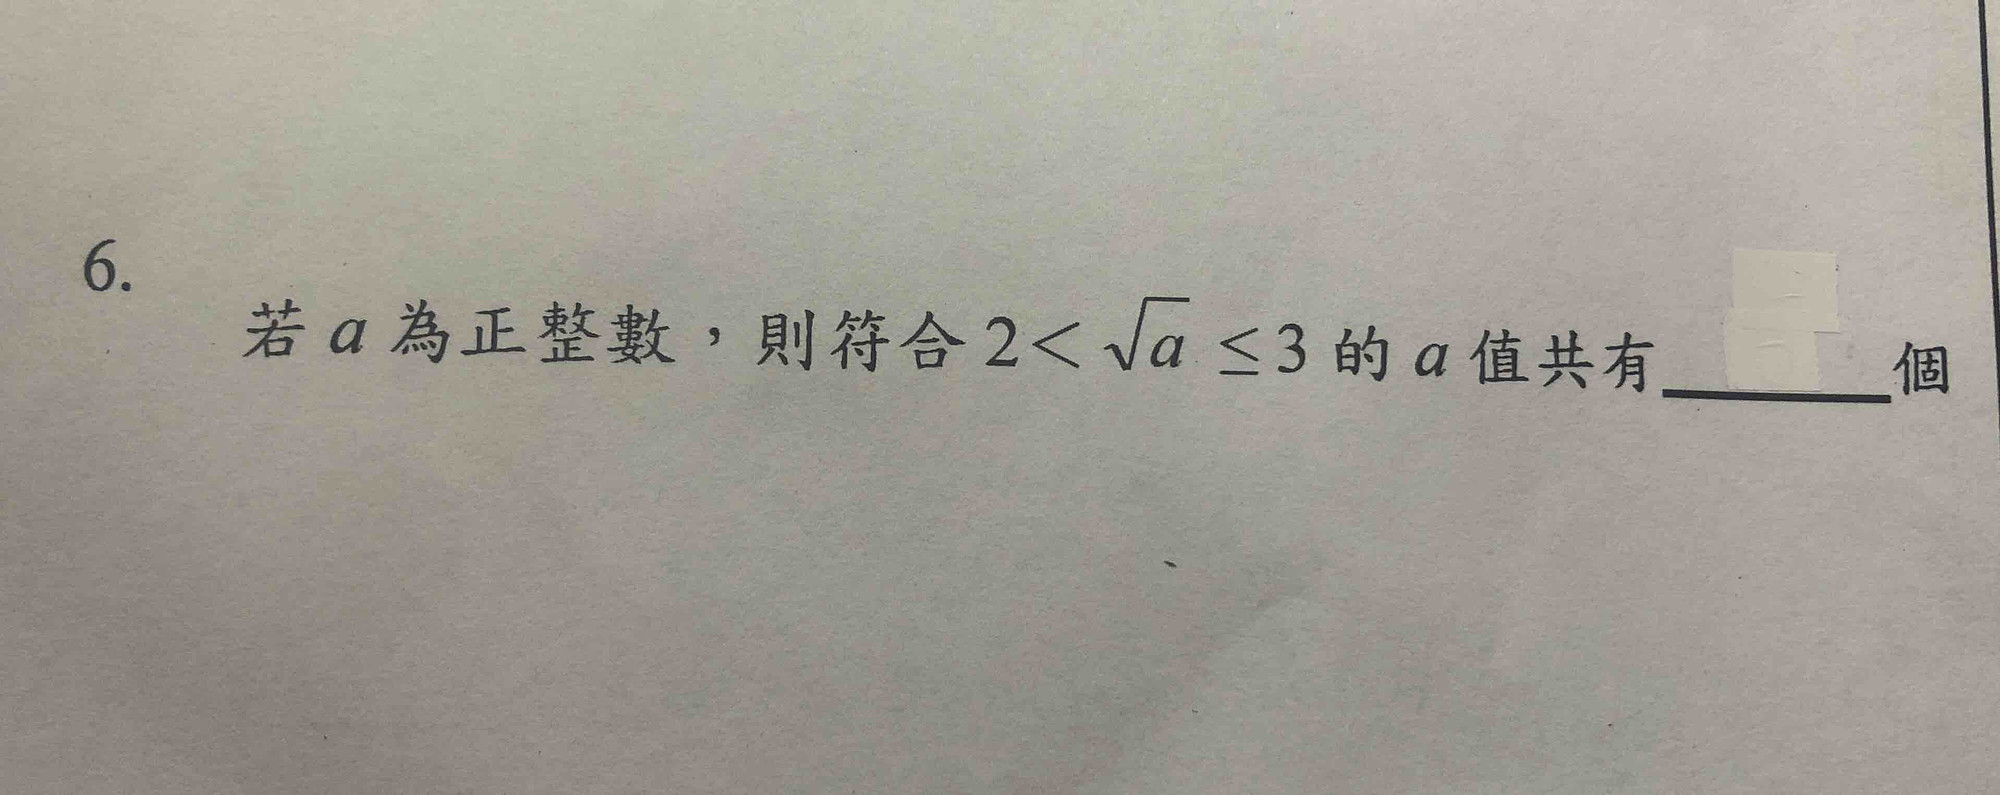 6.
若 a 為正整數，則符合 2< √a ≤3 的 a 值共有______個